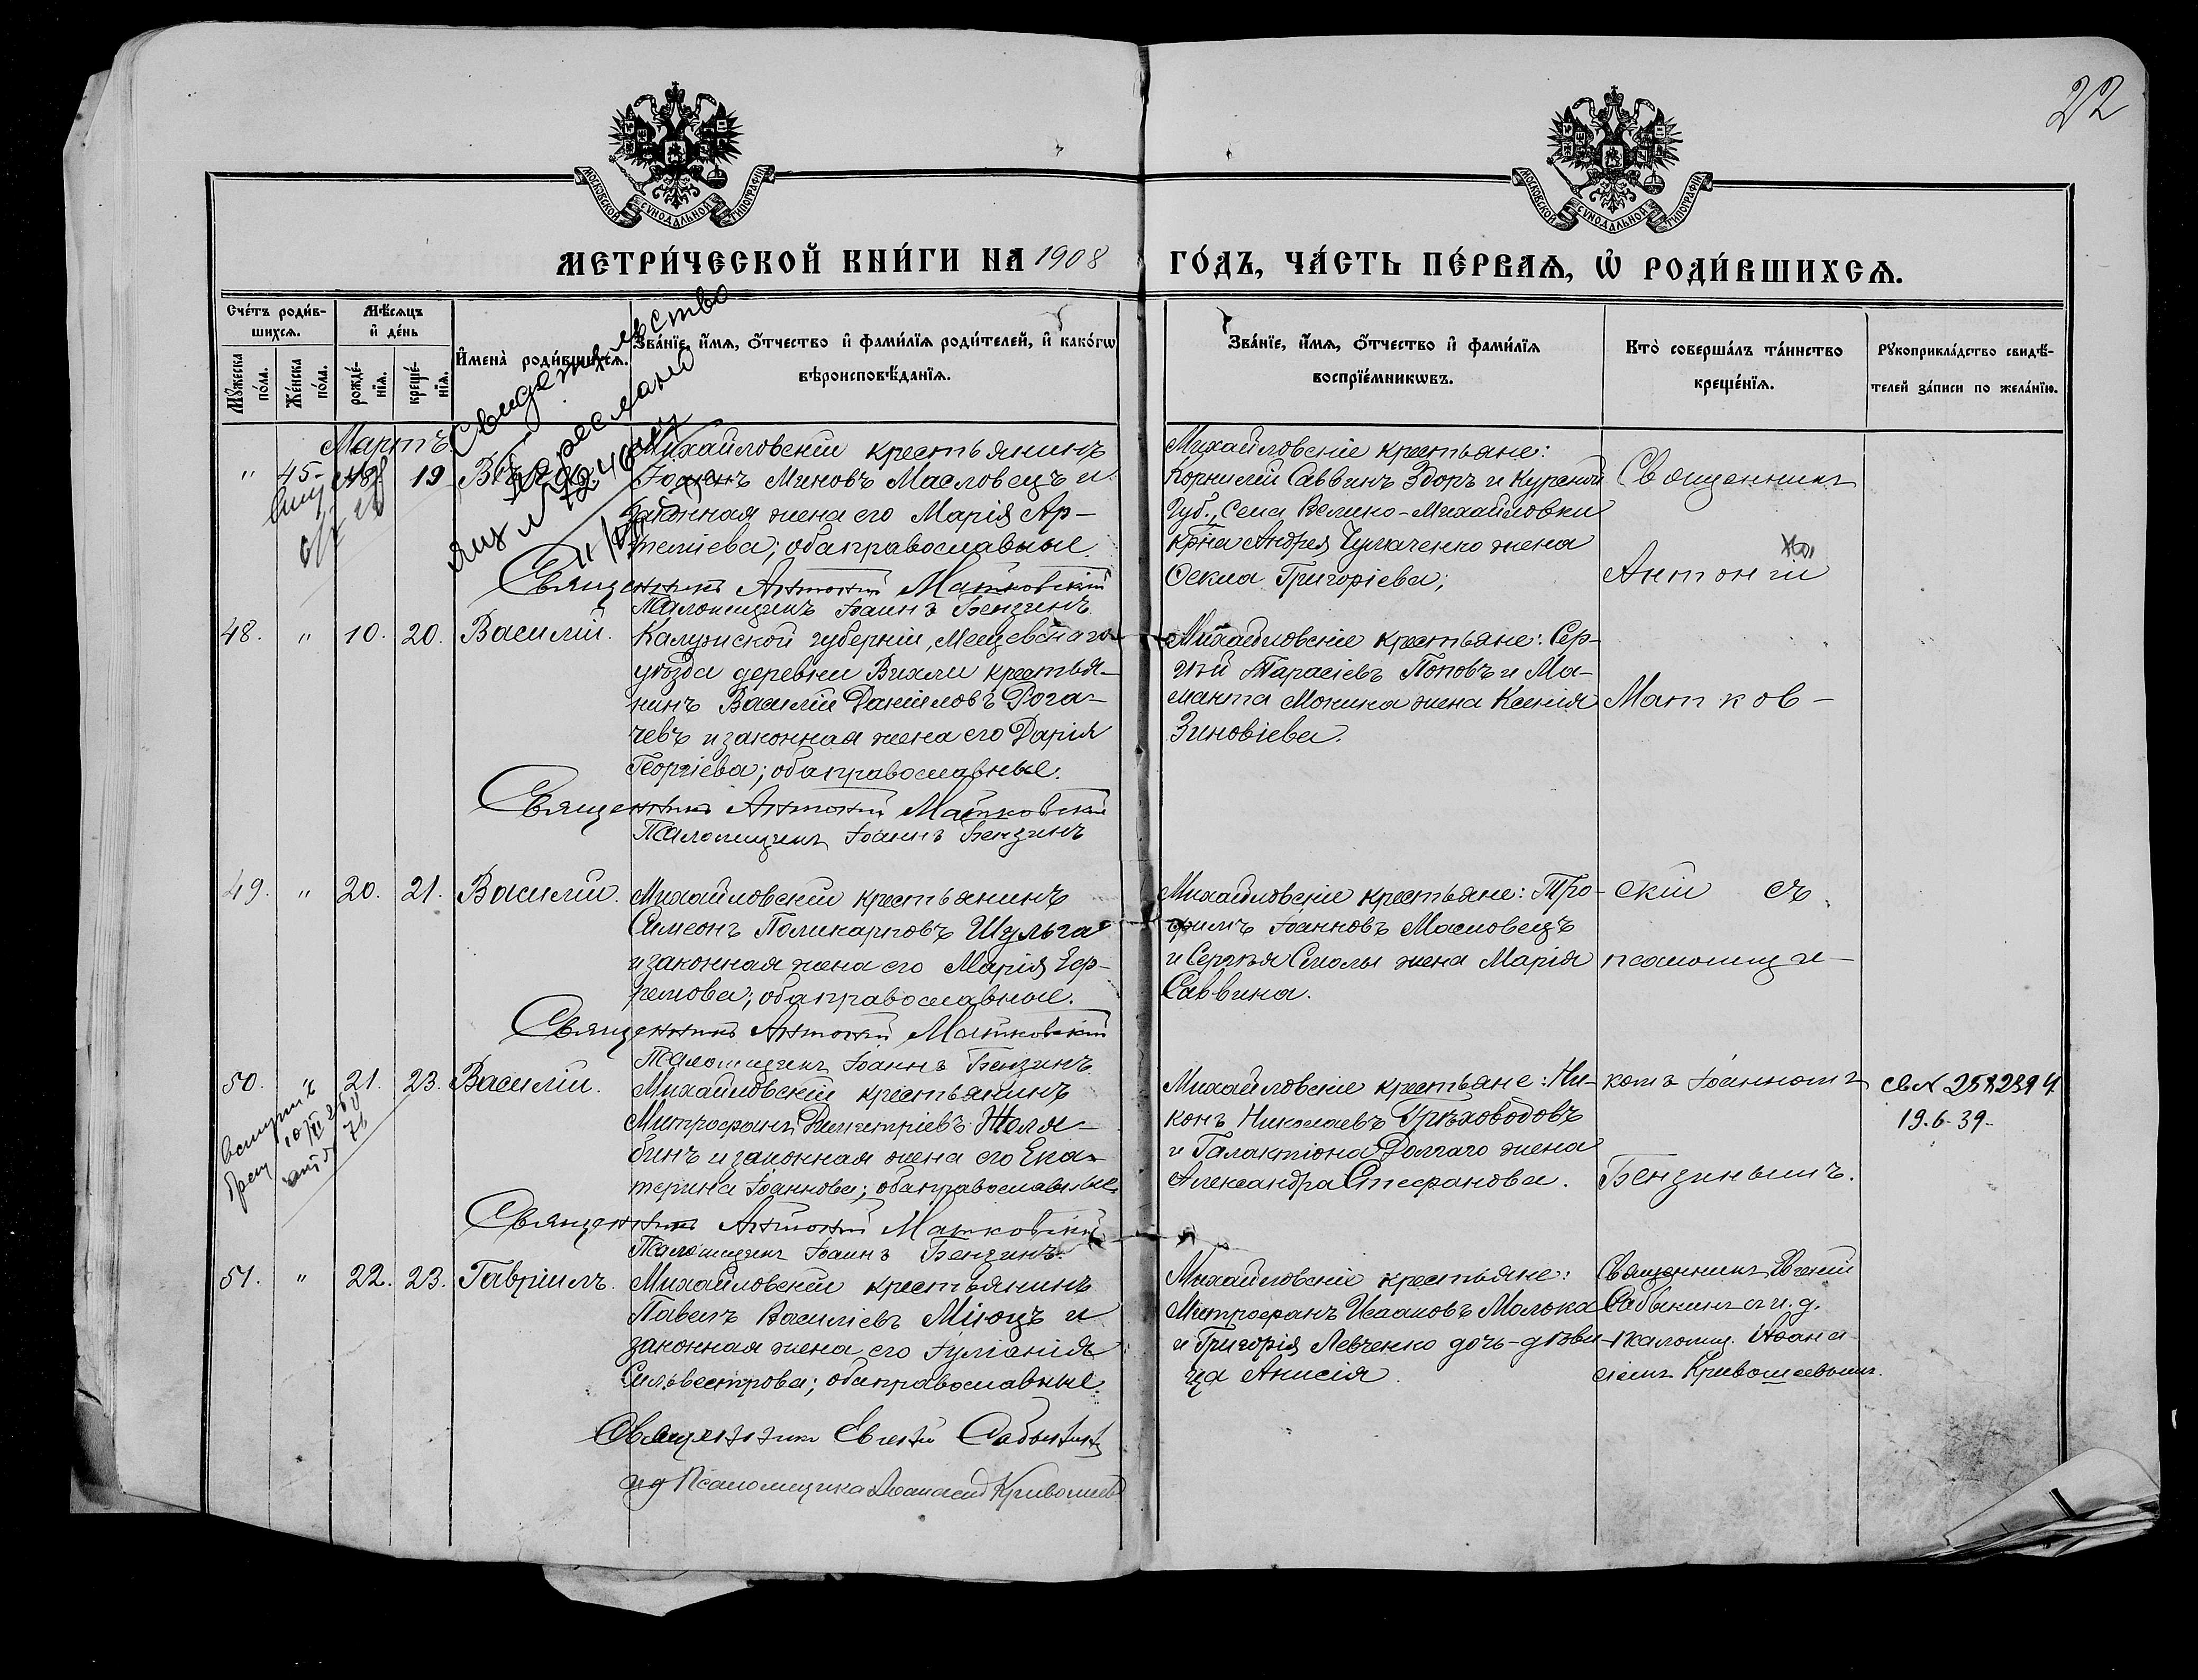 22
МОСКОВСКОЙ СѴНОДАЛЬНОЙ ТИПОГРАФІИ
МОСКОВСКОЙ СѴНОДАЛЬНОЙ ТИПОГРАФІИ
МЕТРИ́ЧЕСКОЙ КНИ́ГИ НА 1908 ГО́ДЪ, ЧА́СТЬ ПЕ́РВАѦ, Ѡ҆ РОДИ́ВШИХСѦ.
Сче́тъ роди́в-
шихсѧ.
Мѣ́сѧцъ
и҆ де́нь
Мꙋ́жеска по́ла.
Же́нска по́ла.
рожде́-
нїѧ.
креще́-
нїѧ.
И҆мена̀ роди́вшихсѧ.
Зва́нїе, и҆́мѧ, ѻ҆́тчество и҆ фами́лїѧ роди́телей, и҆ како́гѡ
вѣроисповѣ́данїѧ.
Зва́нїе, и҆́мѧ, ѻ҆́тчество и҆ фами́лїѧ
воспрїе́мникѡвъ.
Кто̀ соверша́лъ та́инство
креще́нїѧ.
Рꙋкоприкла́дство свидѣ́-
телей за́писи по жела́нїю.
Свидетельство
выслано
Мартъ
" 45. 18 19
Михайловскій крестьянинъ
Іоаннъ Миновъ Масловецъ и
законная жена его Марія Ар-
теміева; оба православные.
Священникъ Антоній Матковскій
Псаломщикъ Іоаннъ Бензинъ
Михайловскіе крестьяне:
Корнилій Саввинъ Здоръ и Курской
Губ., села Велико-Михайловки
кр-на Андрея Чумаченко жена
Ѳекла Григоріева;
Священникъ
Антоній
48. " 10. 20. Василій.
Калужской губерніи, Мещевскаго
уѣзда деревни Вихли крестья-
нинъ Василій Даніиловъ Рога-
чевъ и законная жена его Дарія
Георгіева; оба православные.
Священникъ Антоній Матковскій
Псаломщикъ Іоаннъ Бензинъ
Михайловскіе крестьяне: Сер-
гѣй Тарасіевъ Поповъ и Ма-
манта Мокина жена Ксенія
Зиновіева.
Матков-
49. " 20. 21. Василій.
Михайловскій крестьянинъ
Симеонъ Поликарповъ Шульга
и законная жена его Марія Еф-
ремова; оба православные.
Священникъ Антоній Матковскій
Псаломщикъ Іоаннъ Бензинъ
Михайловскіе крестьяне: Тро-
фимъ Іоанновъ Масловецъ
и Сергѣя Смолы жена Марія
Саввина.
скій съ
псаломщи-
50. " 21. 23. Василій.
Михайловскій крестьянинъ
Митрофанъ Димитріевъ Жоля-
бинъ и законная жена его Ека-
терина Іоаннова; оба православные.
Священникъ Антоній Матковскій
Псаломщикъ Іоаннъ Бензинъ
Михайловскіе крестьяне: Ни-
конъ Николаевъ Грѣховодовъ
и Галактіона Долгаго жена
Александра Стефанова.
комъ Іоанномъ
Бензинымъ.
св N 2582894
19.6.39
51. " 22. 23. Гавріилъ.
Михайловскій крестьянинъ
Павелъ Василіевъ Міюцъ и
законная жена его Іуліанія
Сильвестрова; оба православные.
Священникъ Евгеній Сабынинъ
ид Псаломщика Аѳанасій Кривошеевъ
Михайловскіе крестьяне:
Митрофанъ Исааковъ Малька
и Григорія Левченко дочь-дѣви-
ца Анисія.
Священникъ Евгеній
Сабынинъ и и. д.
псаломщ. Аѳана-
сіемъ Кривошеевымъ.